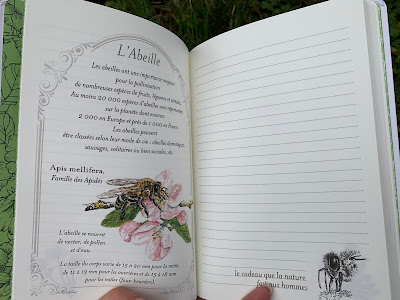 L'Abeille
Les abeilles ont une importance majeure
pour la pollinisation
de nombreuses espèces de fruits, légumes et
Au moins 20 000 espèces d'abeilles sont répertoriées
sur la planète dont environ
2 000 en Europe et près de 1 000 en France
Les abeilles peuvent
être classées selon leur mode de vie : abeilles domestiques,
sauvages, solitaires ou bien sociales, etc.
Apis mellifera,
Famille des Apidés
L'abeille se nourrit
de nectar, de pollen
et d'eau.
La taille du corps varie de 15 à 20 mm pour la reine,
de 11 à 13 mm pour les ouvrières et de 15 à 18 mm
pour les mâles (faux-bourdon).
le cadeau que la nature
fait aux hommes